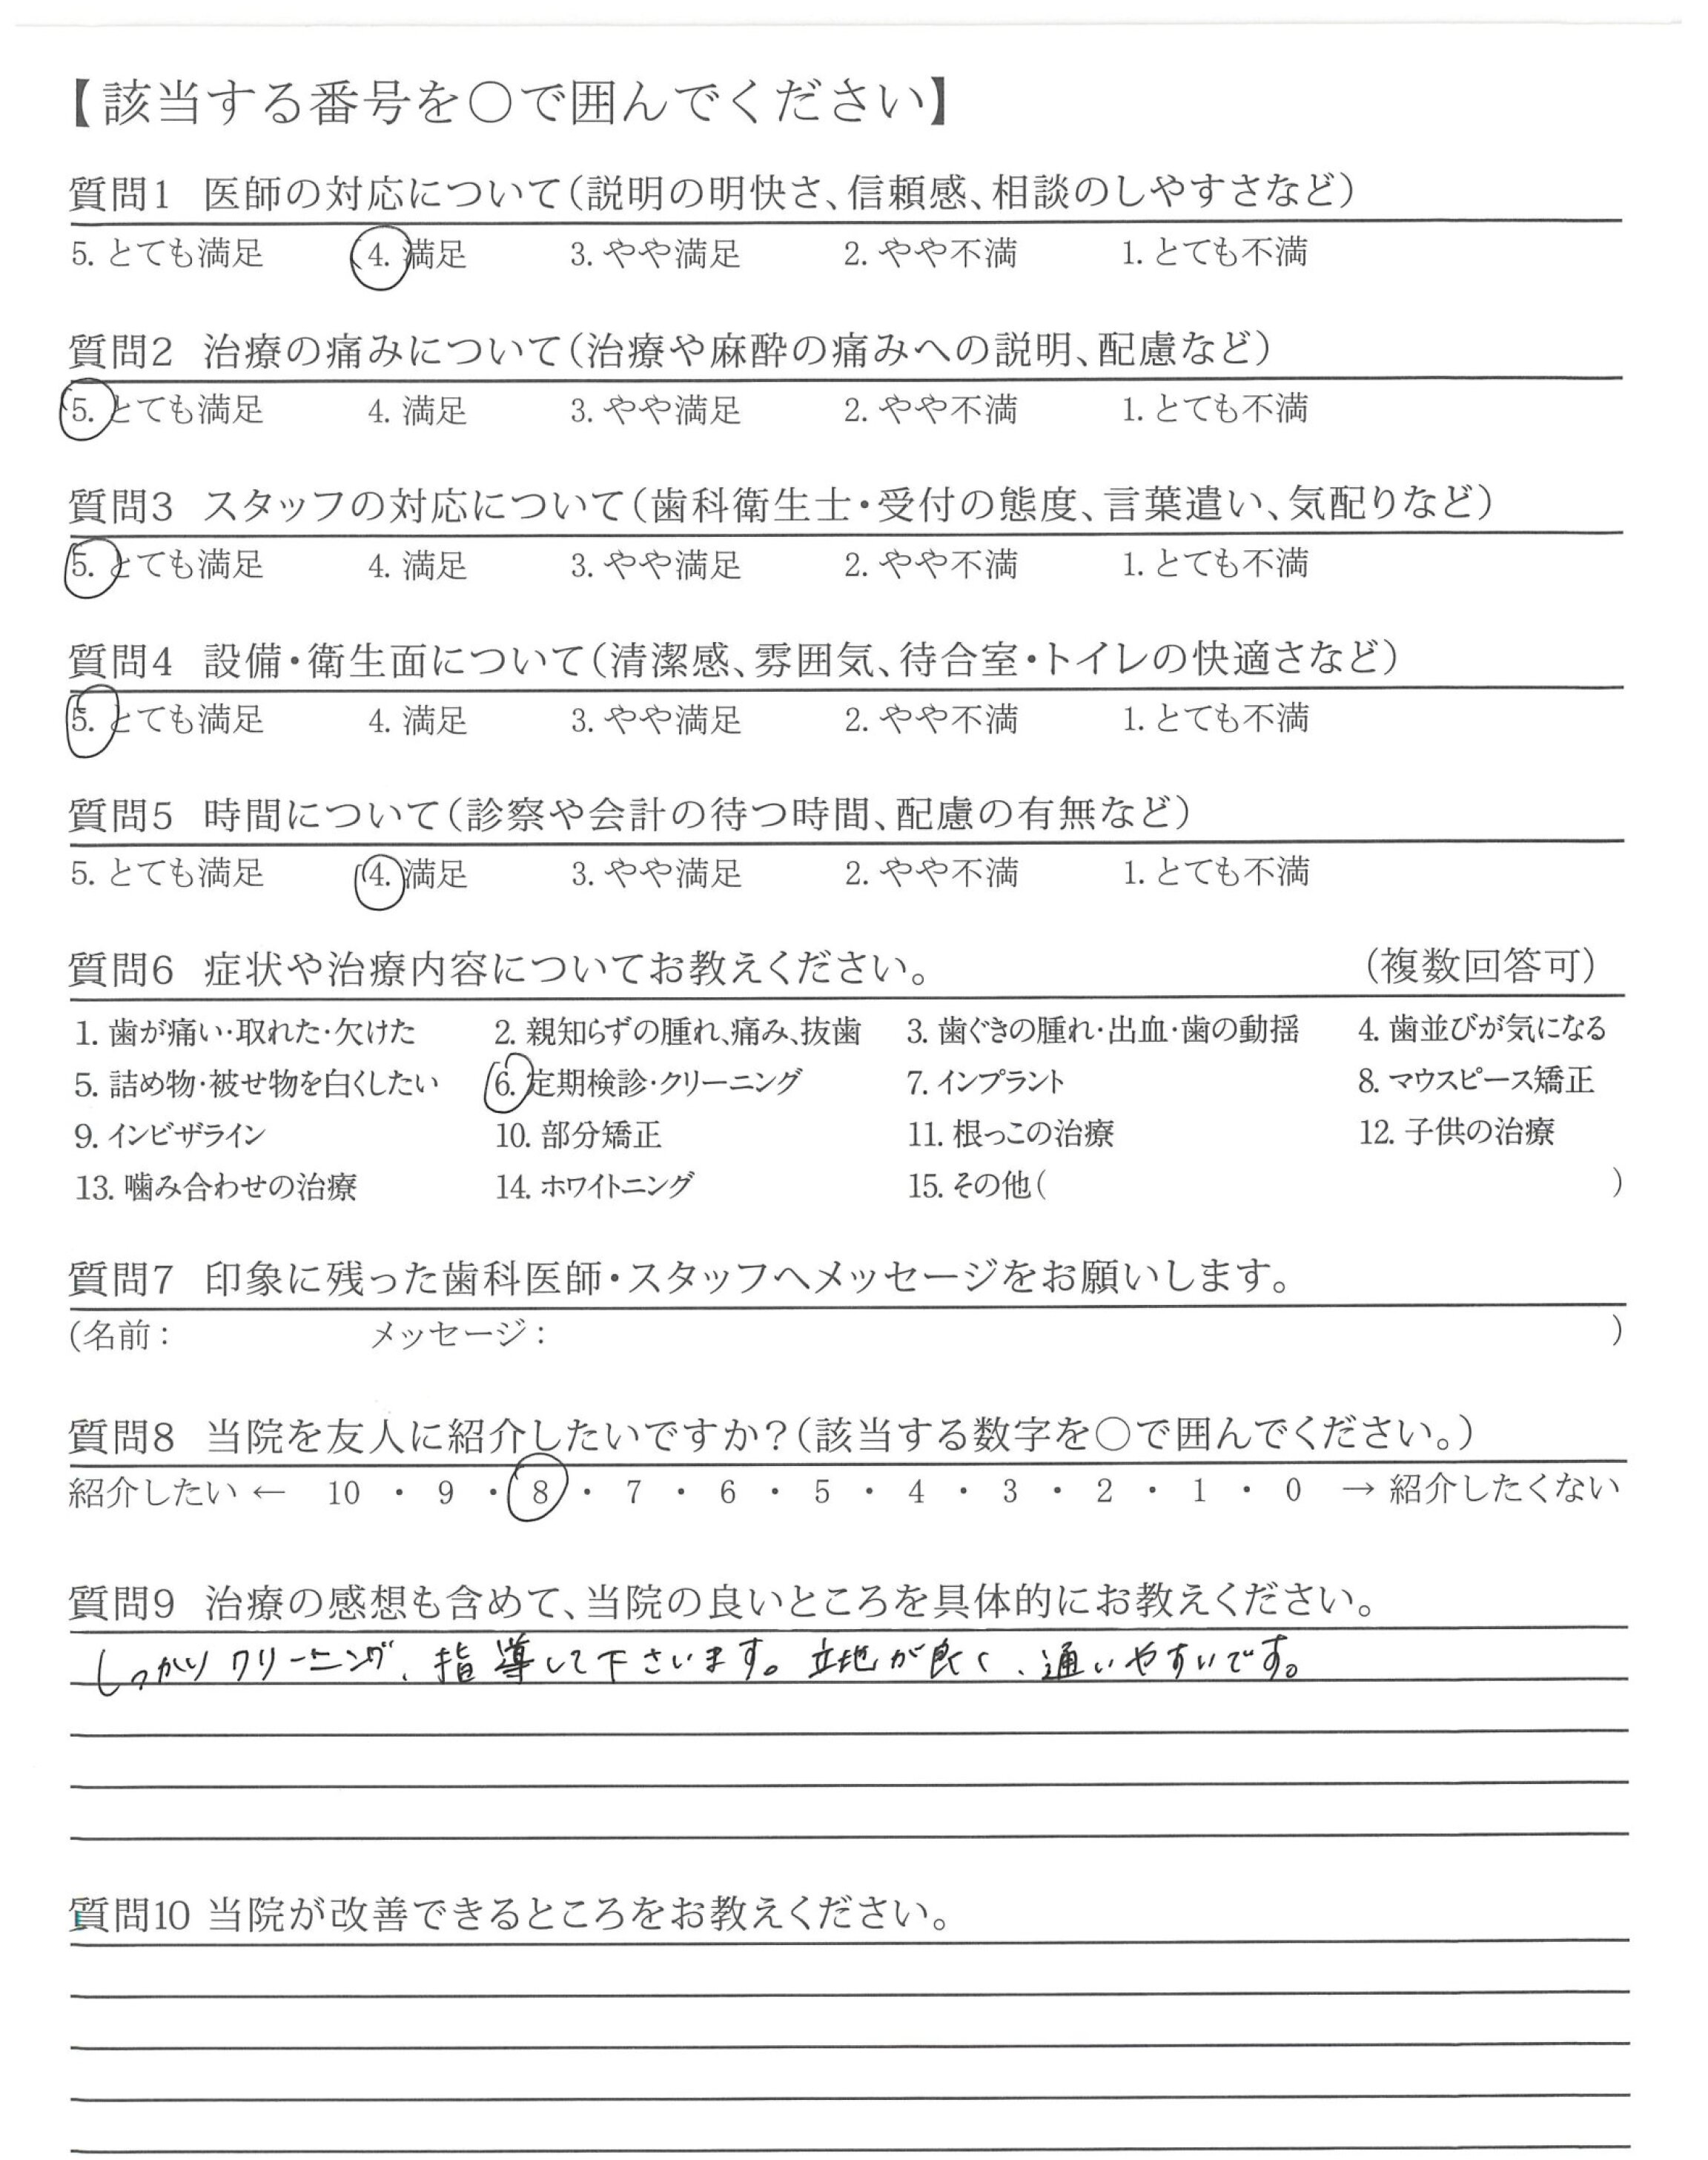 【該当する番号を○で囲んでください】
質問1 医師の対応について(説明の明快さ、信頼感、相談のしやすさなど)
5. とても満足 4. 満足 3. やや満足 2. やや不満 1. とても不満
質問2 治療の痛みについて(治療や麻酔の痛みへの説明、配慮など)
5. とても満足 4. 満足 3. やや満足 2. やや不満 1. とても不満
質問3 スタッフの対応について(歯科衛生士・受付の態度、言葉遣い、気配りなど)
5. とても満足 4. 満足 3. やや満足 2. やや不満 1. とても不満
質問4 設備・衛生面について(清潔感、雰囲気、待合室・トイレの快適さなど)
5. とても満足 4. 満足 3. やや満足 2. やや不満 1. とても不満
質問5 時間について(診察や会計の待つ時間、配慮の有無など)
5. とても満足 4. 満足 3. やや満足 2. やや不満 1. とても不満
質問6 症状や治療内容についてお教えください。 (複数回答可)
1. 歯が痛い・取れた・欠けた 2. 親知らずの腫れ、痛み、抜歯 3. 歯ぐきの腫れ・出血・歯の動揺 4. 歯並びが気になる
5. 詰め物・被せ物を白くしたい 6. 定期検診・クリーニング 7. インプラント 8. マウスピース矯正
9. インビザライン 10. 部分矯正 11. 根っこの治療 12. 子供の治療
13. 噛み合わせの治療 14. ホワイトニング 15. その他( )
質問7 印象に残った歯科医師・スタッフへメッセージをお願いします。
(名前: メッセージ: )
質問8 当院を友人に紹介したいですか?(該当する数字を○で囲んでください。)
紹介したい ← 10 ・ 9 ・ 8 ・ 7 ・ 6 ・ 5 ・ 4 ・ 3 ・ 2 ・ 1 ・ 0 → 紹介したくない
質問9 治療の感想も含めて、当院の良いところを具体的にお教えください。
しっかりクリーニング、指導して下さいます。立地が良く、通いやすいです。
質問10 当院が改善できるところをお教えください。